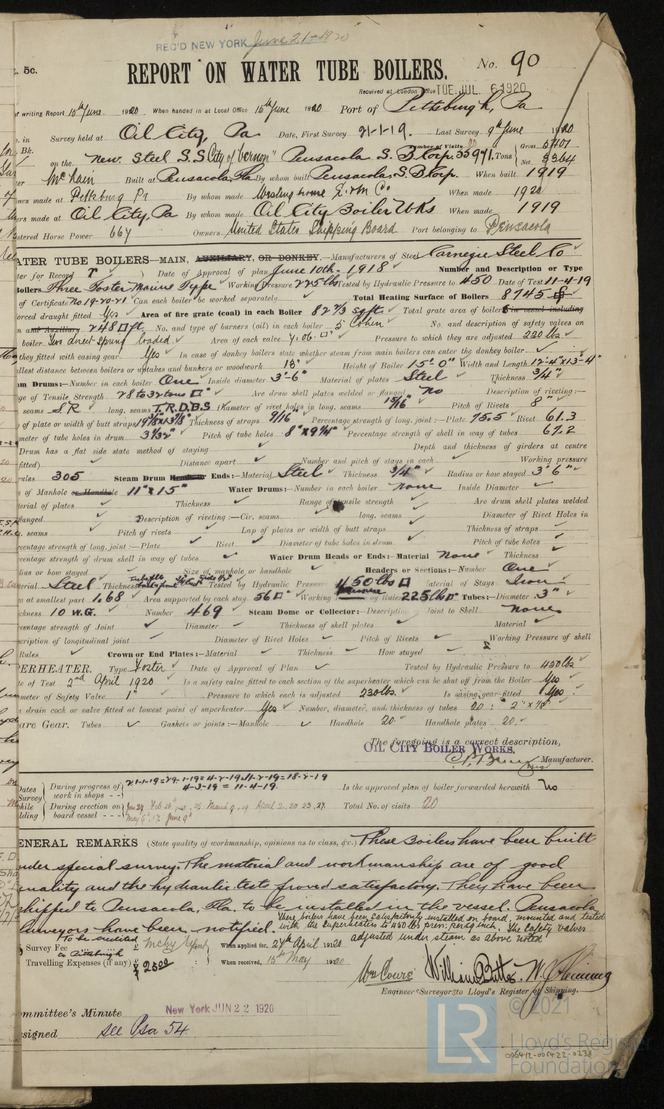 REC'D NEW YORK June 21st 1920
REPORT ON WATER TUBE BOILERS.
No. 90
Received at London Office TUE. JUL. 6 1920
of writing Report 15th June 1920 When handed in at Local Office 15th June 1920 Port of Pittsburgh, Pa
Survey held at Oil City, Pa Date, First Survey 21-1-19. Last Survey 9th June 1920
on the New Steel S.S. "City of Vernon" Pensacola S.B. Corp. Tons Gross Net 3364
McLain Built at Pensacola, Fla By whom built Pensacola, S.B. Corp. When built 1919
made at Pittsburg Pa By whom made Westinghouse E & M Co When made 1920
made at Oil City, Pa By whom made Oil City Boiler Wks When made 1919
Horse Power 667 Owners United States Shipping Board Port belonging to Pensacola
WATER TUBE BOILERS—MAIN, AUXILIARY, OR DONKEY.—Manufacturers of Steel Carnegie Steel Co
for Record Date of Approval of plan June 10th 1918 Number and Description or Type
Boilers Three Foster Marine Type Working Pressure 225 lbs Tested by Hydraulic Pressure to 450 Date of Test 11-4-19
of Certificate No 19-20-21 Can each boiler be worked separately Total Heating Surface of Boilers 8745
forced draught fitted Yes Area of fire grate (coal) in each Boiler 82 2/3 sqft. Total grate area of boilers including
and Auxiliary 248 □ft. No. and type of burners (oil) in each boiler 5 Coen No. and description of safety valves on
boiler Two direct spring loaded Area of each valve 7.06 □" Pressure to which they are adjusted 220 lbs
they fitted with easing gear Yes In case of donkey boilers state whether steam from main boilers can enter the donkey boiler
distance between boilers or uptakes and bunkers or woodwork 18" Height of Boiler 15'-0" Width and Length 12'-4" x 13'-4"
Drums:—Number in each boiler One Inside diameter 3'-6" Material of plates Steel Thickness 3/4"
of Tensile Strength 28 to 32 tons □" Are drum shell plates welded or flanged No Description of riveting:—
seams S.R long. seams T.R.D.B.S Diameter of rivet holes in long. seams 15/16" Pitch of Rivets 8"
of plate or width of butt straps Thickness of straps 9/16 Percentage strength of long. joint:—Plate Rivet 61.3
diameter of tube holes in drum 3 1/32" Pitch of tube holes 8" x 9 1/4" Percentage strength of shell in way of tubes 67.2
Drum has a flat side state method of staying Depth and thickness of girders at centre
fitted) Distance apart Number and pitch of stays in each Working pressure
rules 305 Steam Drum Ends:—Material Steel Thickness 3/4" Radius or how stayed 3'6"
of Manhole or Handhole 11" x 15" Water Drums:—Number in each boiler None Inside Diameter
Material of plates Thickness Range of tensile strength Are drum shell plates welded
flanged Description of riveting:—Cir. seams long. seams Diameter of Rivet Holes in
seams Pitch of rivets Lap of plates or width of butt straps Thickness of straps
percentage strength of long. joint:—Plate Rivet Diameter of tube holes in drum Pitch of tube holes
percentage strength of drum shell in way of tubes Water Drum Heads or Ends:—Material None Thickness
or how stayed Size of manhole or handhole Headers or Sections:—Number One
Material Steel Thickness Tested by Hydraulic Pressure 450 lbs □ Material of Stays Iron
at smallest part 1.68 Area supported by each stay 56 □" Working pressure by Rules 225 lbs □ Tubes:—Diameter 3"
Thickness 10 W.G. Number 469 Steam Dome or Collector:—Description Joint to Shell None
percentage strength of Joint Diameter Thickness of shell plates Material
Description of longitudinal joint Diameter of Rivet Holes Pitch of Rivets Working Pressure of shell
Rules Crown or End Plates:—Material Thickness How stayed
SUPERHEATER. Type Foster Date of Approval of Plan Tested by Hydraulic Pressure to 450 lbs
Date of Test 2nd April 1920 Is a safety valve fitted to each section of the superheater which can be shut off from the Boiler Yes
Diameter of Safety Valve 1" Pressure to which each is adjusted 220 lbs Is easing gear fitted Yes
drain cock or valve fitted at lowest point of superheater Yes Number, diameter, and thickness of tubes 20
SPARE GEAR. Tubes Gaskets or joints:—Manhole Handhole 20 Handhole plates 20
The foregoing is a correct description,
OIL CITY BOILER WORKS.
Manufacturer.
Dates Survey while building During progress of work in shops -- 21-1-19 = 29-1-19 = 4-2-19 = 11-2-19 = 18-2-19
4-3-19 = 11-4-19. Is the approved plan of boiler forwarded herewith No
During erection on board vessel --- Total No. of visits 20
GENERAL REMARKS (State quality of workmanship, opinions as to class, &c. These Boilers have been built
under special survey. The material and workmanship are of good
quality and the hydraulic tests proved satisfactory. They have been
shipped to Pensacola, Fla. to be installed in the vessel. Pensacola
Surveyors have been notified. These boilers have been satisfactorily installed on board, mounted and tested
with the superheaters to 450 lbs pres. per sq inch. The Safety valves
adjusted under steam as above noted
To be credited to Pittsburgh
Survey Fee When applied for, 27th April 1920
Travelling Expenses (if any) £ When received, 15th May 1920
William Butts
Engineer Surveyors to Lloyd's Register of Shipping.
Committee's Minute New York JUN 22 1920
Assigned see Psa 54
© 2021
LR
Lloyd's Register
Foundation